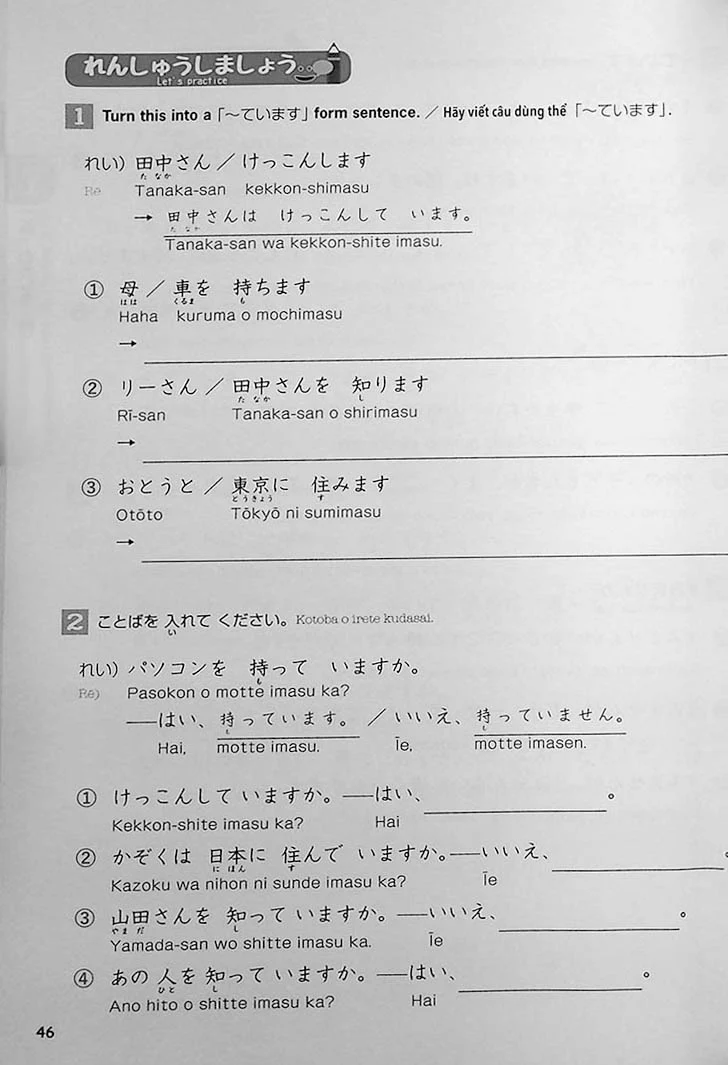 れんしゅうしましょう
Let's practice
1 Turn this into a「～ています」form sentence. ／ Hãy viết câu dùng thể「～ています」.
れい) 田中さん ／ けっこんします
た なか
Rē Tanaka-san kekkon-shimasu
→ 田中さんは けっこんして います。
た なか
Tanaka-san wa kekkon-shite imasu.
① 母 ／ 車を 持ちます
はは くるま も
Haha kuruma o mochimasu
→
② リーさん ／ 田中さんを 知ります
た なか し
Rī-san Tanaka-san o shirimasu
→
③ おとうと ／ 東京に 住みます
とうきょう す
Otōto Tōkyō ni sumimasu
→
2 ことばを 入れて ください。Kotoba o irete kudasai.
い
れい) パソコンを 持って いますか。
も
Rē) Pasokon o motte imasu ka?
──はい、持っています。 ／いいえ、持っていません。
Hai, motte imasu. Īe, motte imasen.
① けっこんして いますか。──はい、 。
Kekkon-shite imasu ka? Hai
② かぞくは 日本に 住んで いますか。──いいえ、 。
に ほん す
Kazoku wa nihon ni sunde imasu ka? Īe
③ 山田さんを 知って いますか。──いいえ、 。
やま だ し
Yamada-san wo shitte imasu ka. Īe
④ あの 人を 知って いますか。──はい、 。
ひと し
Ano hito o shitte imasu ka? Hai
46